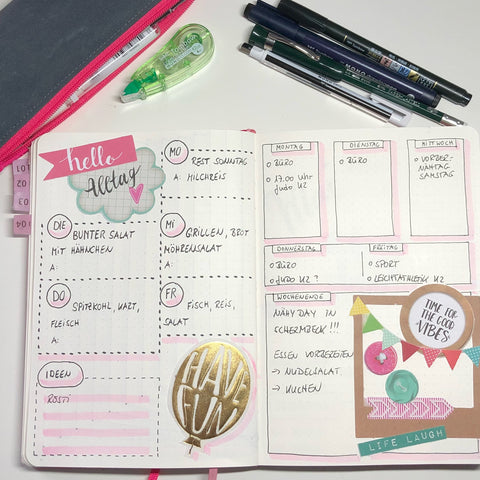 01
02
03
04
hello
Alltag
MO
REST SONNTAG
A: MILCHREIS
DIE
BUNTER SALAT
MIT HÄHNCHEN
A:
MI
GRILLEN, BROT
MÖHRENSALAT
A:
DO
SPITZKOHL, KART,
FLEISCH
A:
FR
FISCH, REIS,
SALAT
IDEEN
RÖSTI
HAVE
FUN
MONTAG
BÜRO
17.00 Uhr
Judo U2
DIENSTAG
BÜRO
MITTWOCH
VORBER-
NÄHTAG
SAMSTAG
DONNERSTAG
BÜRO
Judo U2 ?
FREITAG
SPORT
LEICHTATHLETIK U2
WOCHENENDE
NÄHDAY IN
SCHERMBECK !!!
ESSEN VORBEREITEN
→ NUDELSALAT
→ KUCHEN
TIME FOR
THE GOOD
VIBES
LIFE LAUGH
MONO